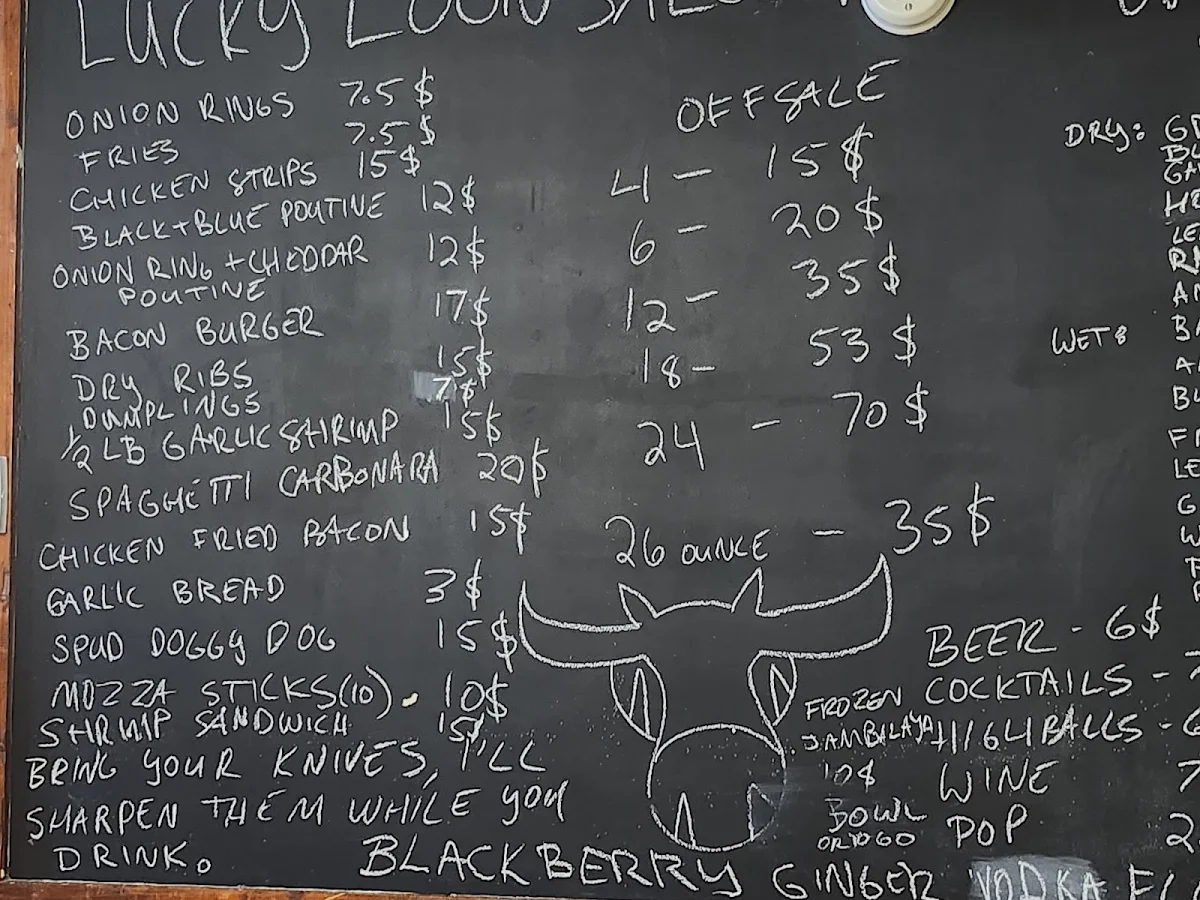 LUCKY LOON
ONION RINGS 7.5$
FRIES 7.5$
CHICKEN STRIPS 15$
BLACK+BLUE POUTINE 12$
ONION RING +CHEDDAR 12$
POUTINE
BACON BURGER 17$
DRY RIBS 15$
DUMPLINGS 7$
1/2 LB GARLIC SHRIMP 15$
SPAGHETTI CARBONARA 20$
CHICKEN FRIED BACON 15$
GARLIC BREAD 3$
SPUD DOGGY DOG 15$
MOZZA STICKS(10) 10$
SHRIMP SANDWICH 15$
BRING YOUR KNIVES, I'LL
SHARPEN THEM WHILE YOU
DRINK.
OFFSALE
4 - 15$
6 - 20$
12 - 35$
18 - 53$
24 - 70$
26 OUNCE - 35$
DRY:
WET:
BEER - 6$
COCKTAILS -
HIGHBALLS -
WINE 7
POP 2
FROZEN
JAMBALAYA
10$
BOWL
OR TO GO
BLACKBERRY GINGER VODKA